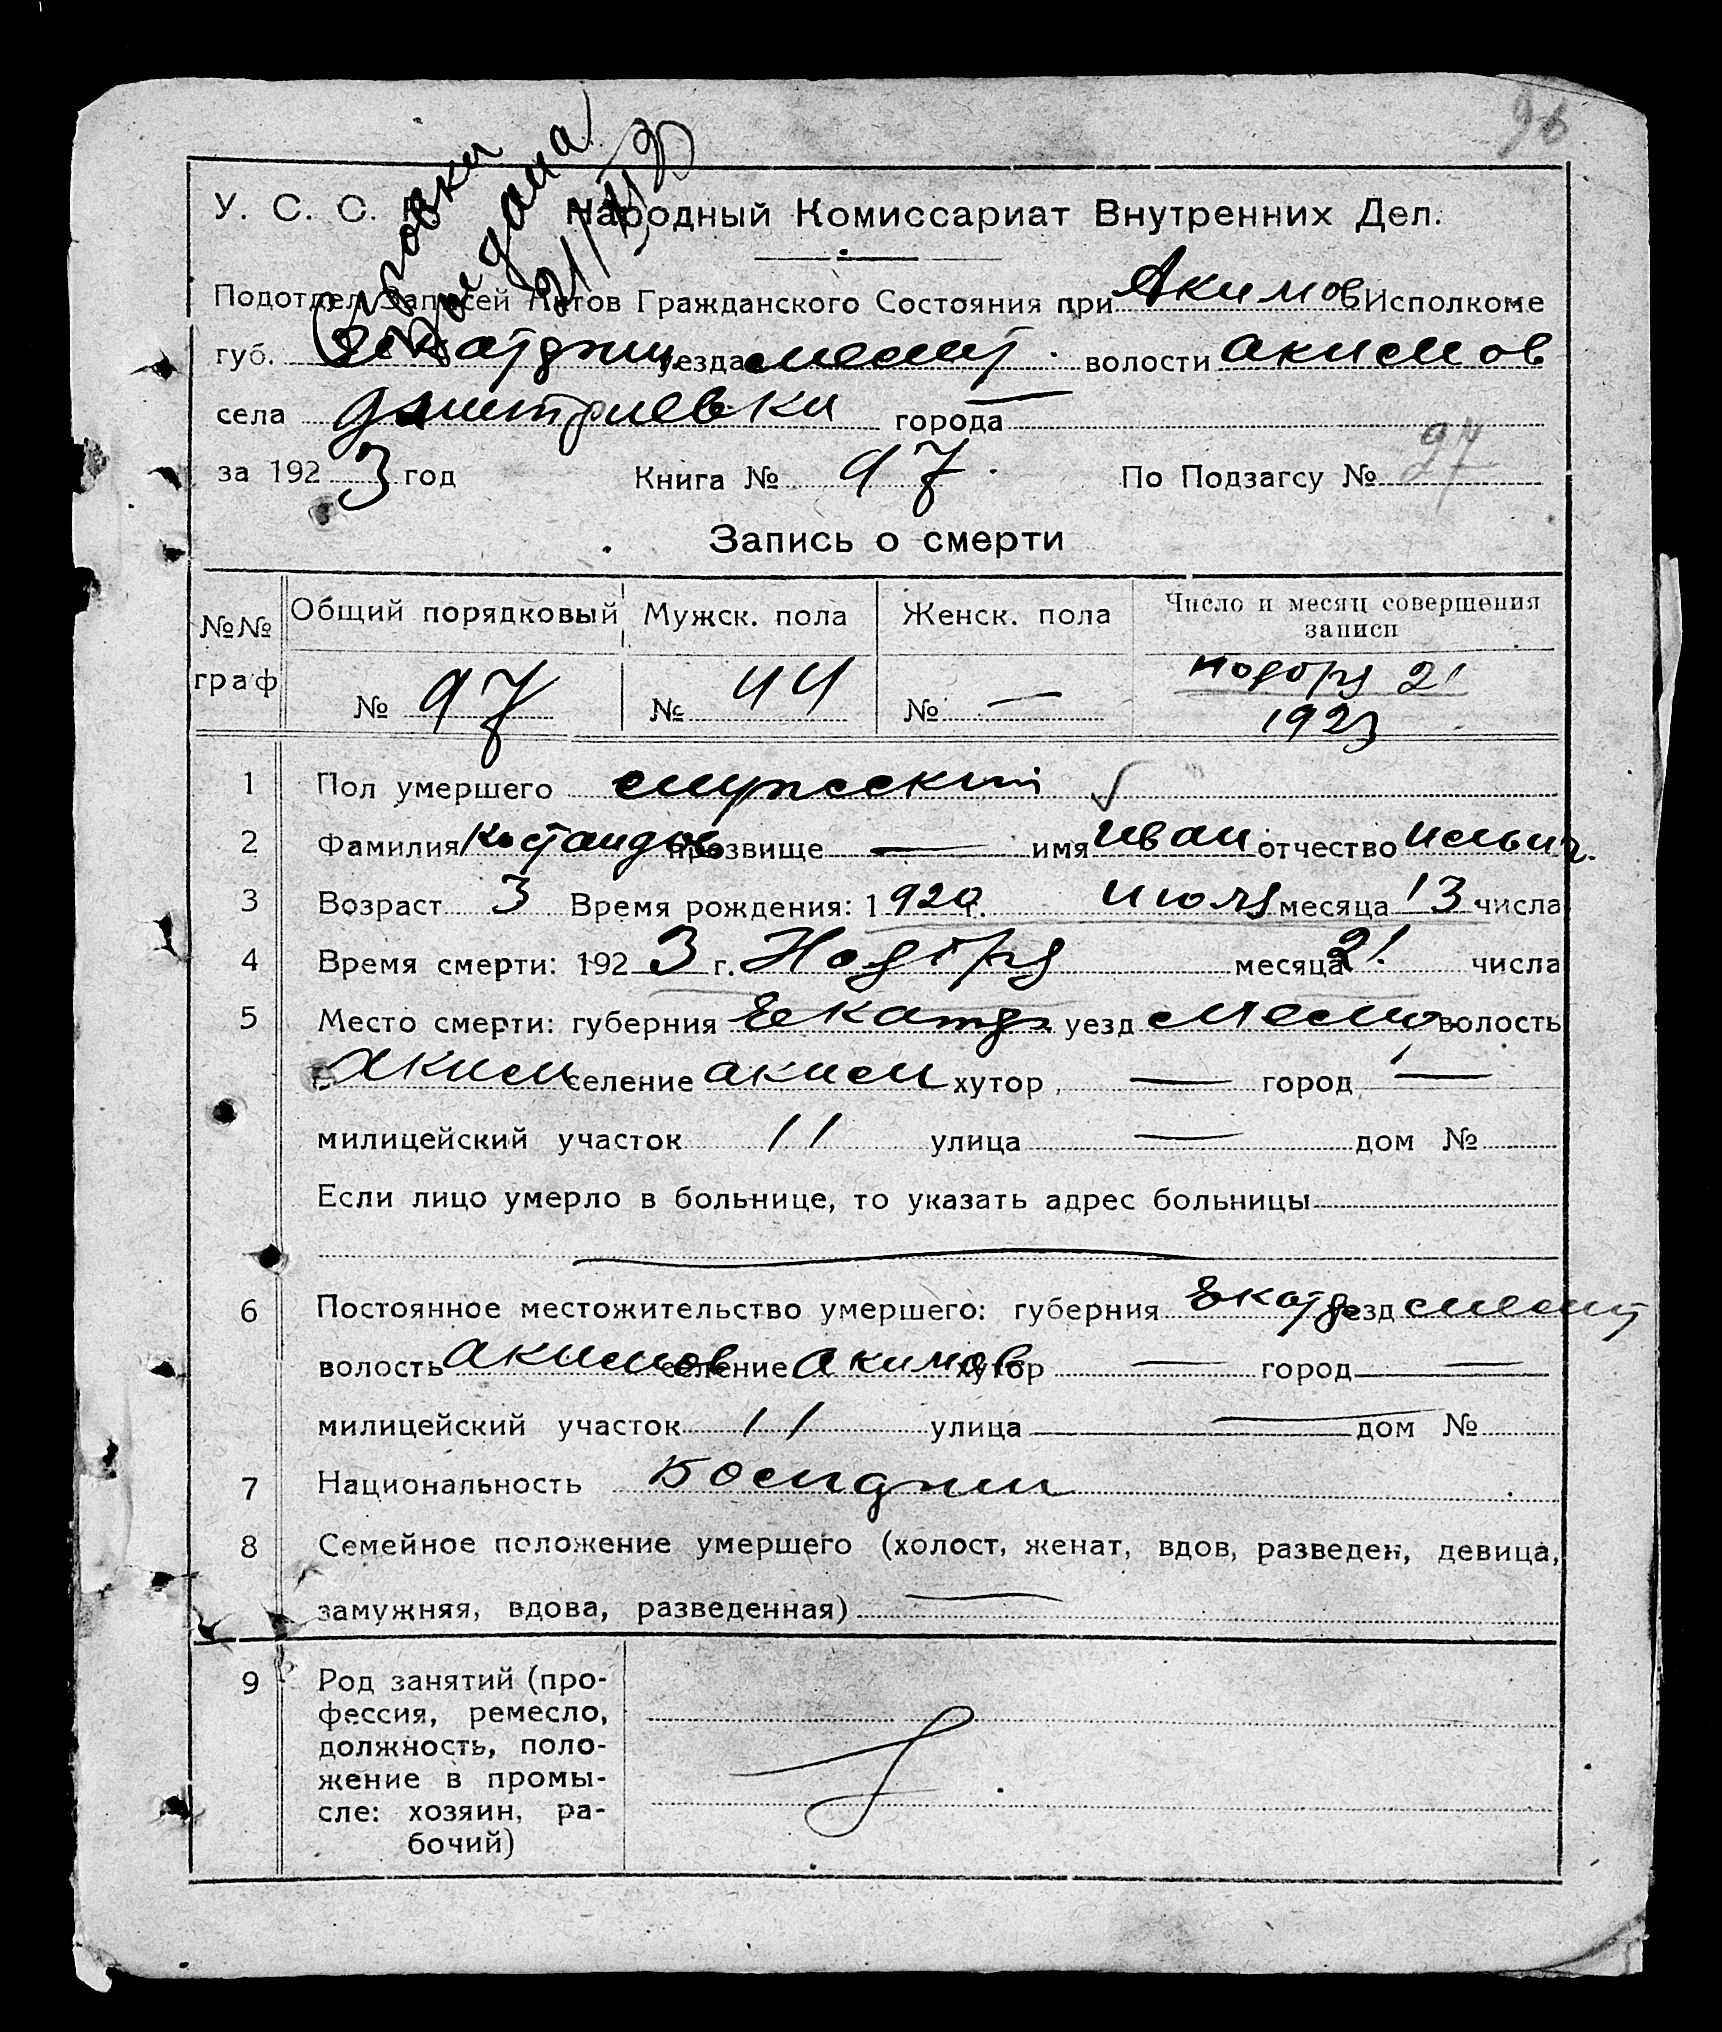 96
Справка
выдана
У. С. С. Р. Народный Комиссариат Внутренних Дел.
Подотдел Записей Актов Гражданского Состояния при Акимов Исполкоме
губ. Екат уезда мелит. волости акимов
села дмитриевки города —
за 1923 год Книга № 97. По Подзагсу № 97
Запись о смерти
№№ граф
Общий порядковый Мужск. пола Женск. пола Число и месяц совершения
записи
№ 97 № 44 № — ноября 21
1923
1 Пол умершего мужской
2 Фамилия прозвище — имя иван отчество ильич.
3 Возраст 3 Время рождения: 1920 г. июля месяца 13 числа
4 Время смерти: 1923 г. Ноября месяца 21 числа
5 Место смерти: губерния Екат уезд Мелит волость
Аким селение аким хутор — город —
милицейский участок 11 улица — дом №
Если лицо умерло в больнице, то указать адрес больницы
—
6 Постоянное местожительство умершего: губерния Екат уезд мелит
волость акимов селение акимов хутор — город —
милицейский участок 11 улица — дом №
7 Национальность
8 Семейное положение умершего (холост, женат, вдов, разведен, девица,
замужняя, вдова, разведенная) —
9 Род занятий (про-
фессия, ремесло,
должность, поло-
жение в промы-
сле: хозяин, ра-
бочий)